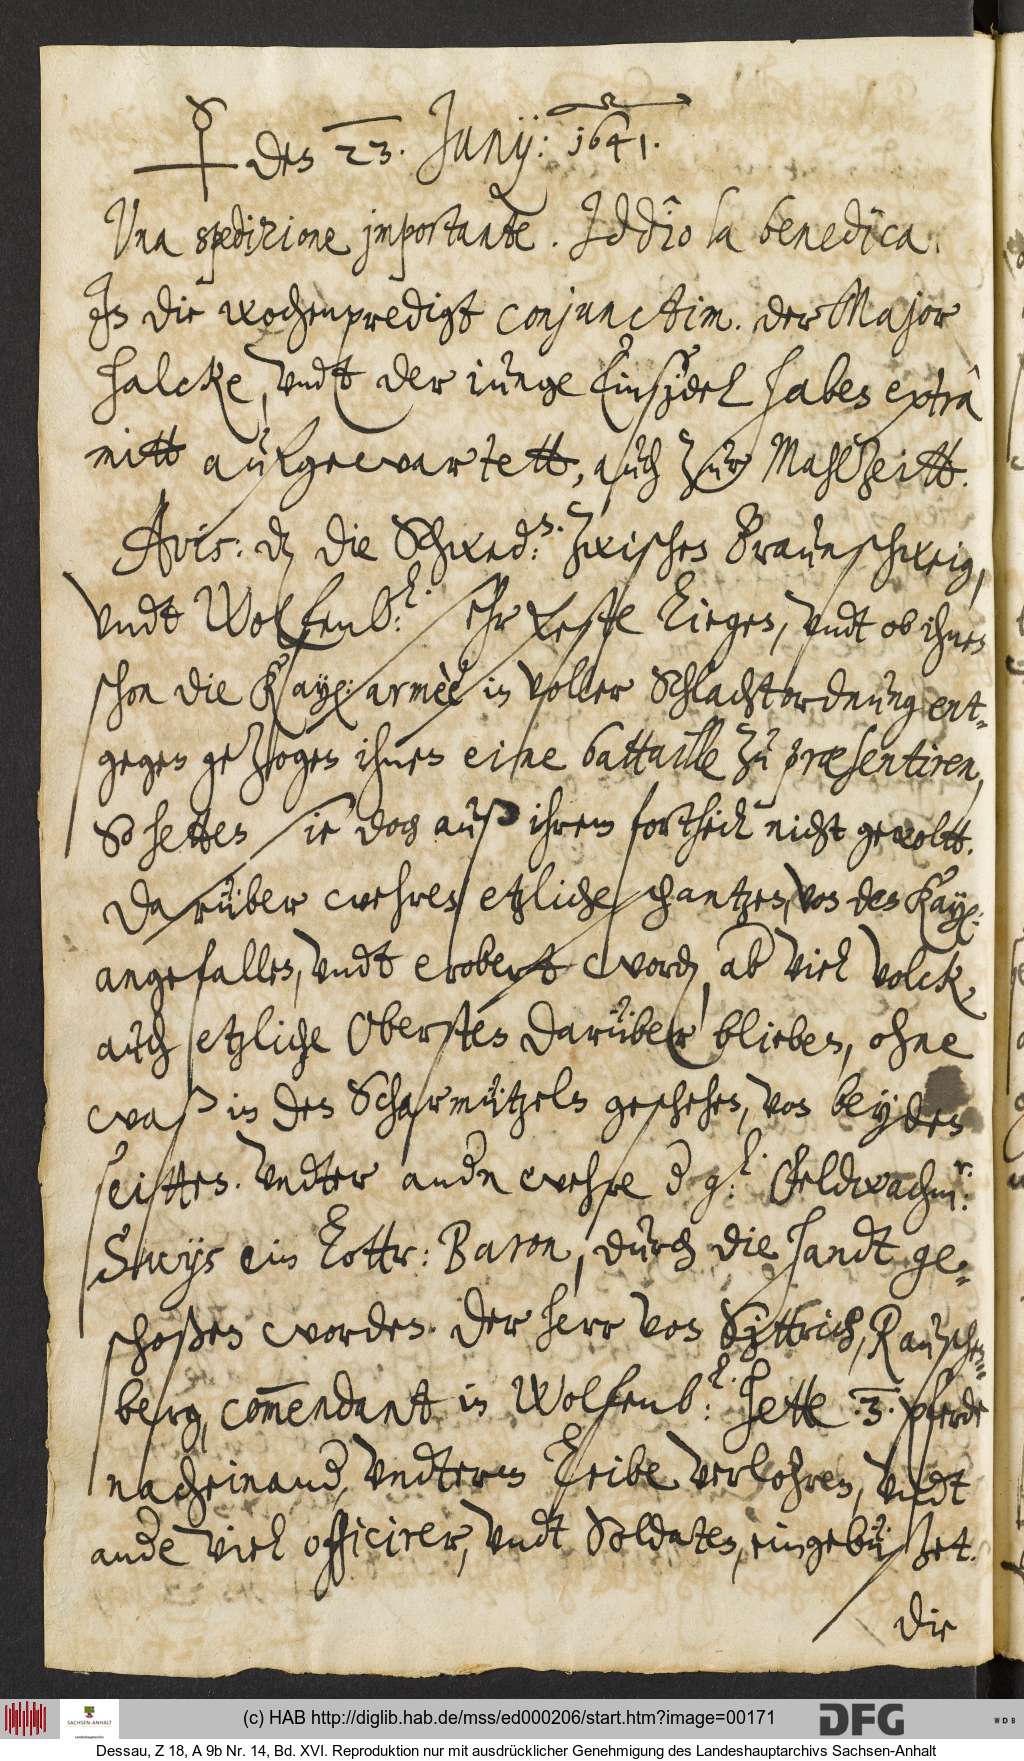 ♀ den 23. Junij: 1641.
Una spedizione importante. Iddîo la benedîca.
In die wochenpredigt conjunctim. der Major
Halcke, vndt der iunge Einsydel haben extrâ
mitt aufgewartett, auch zur Mahlzeitt.
Avis: dz die Schwed:n. zwischen Braunschweig,
vndt Wolfenb:l. sehr feste liegen, vndt ob ihnen
schon die Kayß: armèe in voller Schlachtordnung ent-
gegen gezogen ihnen eine battaille zu præsentiren,
So hetten sie doch auß ihrem fortheil nicht gewoltt.
Darüber wehren etzliche schantzen, von den Kayß:
angefallen, vndt erobert word, ab viel volck,
auch etzliche Obersten darüber blieben, ohne
waß in den Scharmützeln geschehen, von beyden
seitten. Vndter andn wehre d g:l. Feldwachm:r.
Suuys ein Lottr: Baron, durch die handt ge-
schoßen worden. Der herr von Syttrich, Rauschen-
berg, com̄endant in Wolfenb:l. hette .3. pferde
nacheinand, vndterm Leibe verlohren, vndt
ande viel officirer, vndt Soldaten, eingebüßet.
die
(c) HAB http://diglib.hab.de/mss/ed000206/start.htm?image=00171
SACHSEN-ANHALT
DFG
WDB
Dessau, Z 18, A 9b Nr. 14, Bd. XVI. Reproduktion nur mit ausdrücklicher Genehmigung des Landeshauptarchivs Sachsen-Anhalt